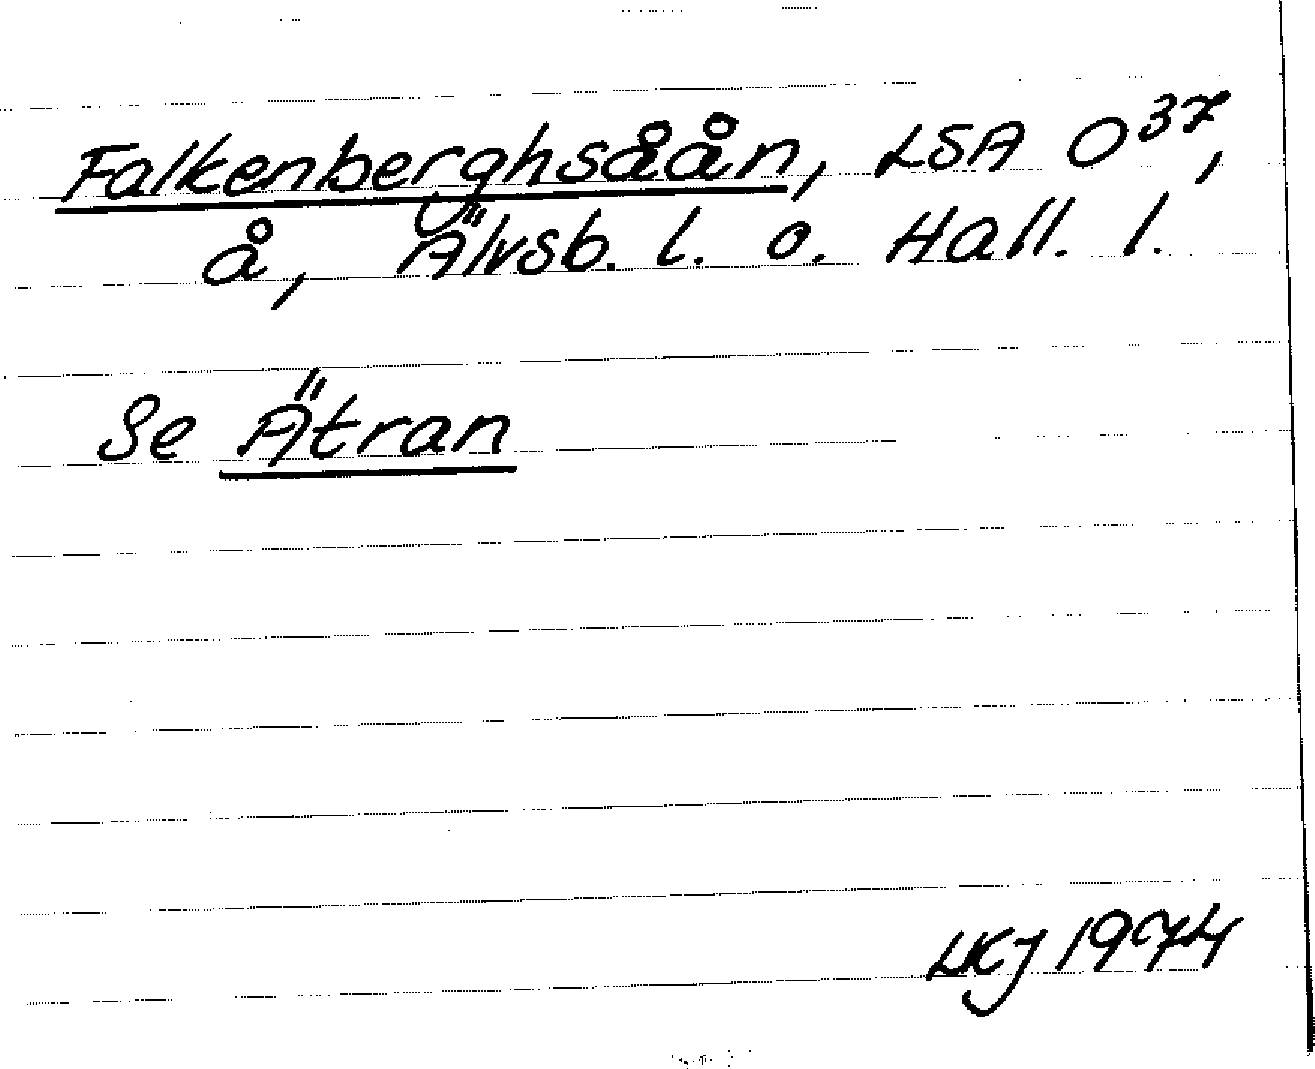 Falkenberghsåån, LSA O³⁷,
å, Älvsb. l. o. Hall. l.
Se Ätran
LKJ 1974